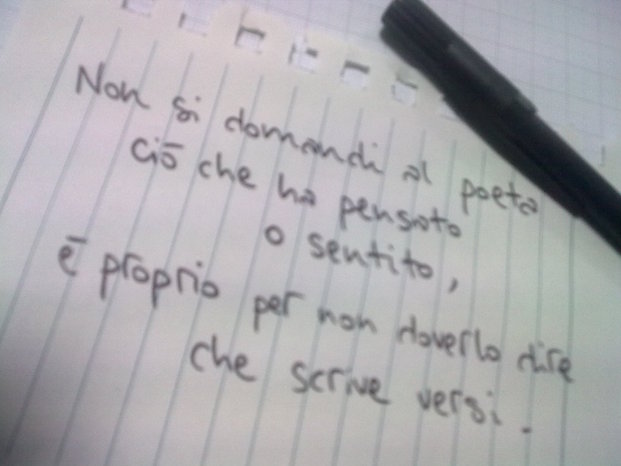 Non si domandi al poeta
ciō che ha pensato
o sentito,
ē proprio per non doverlo dire
che scrive versi.